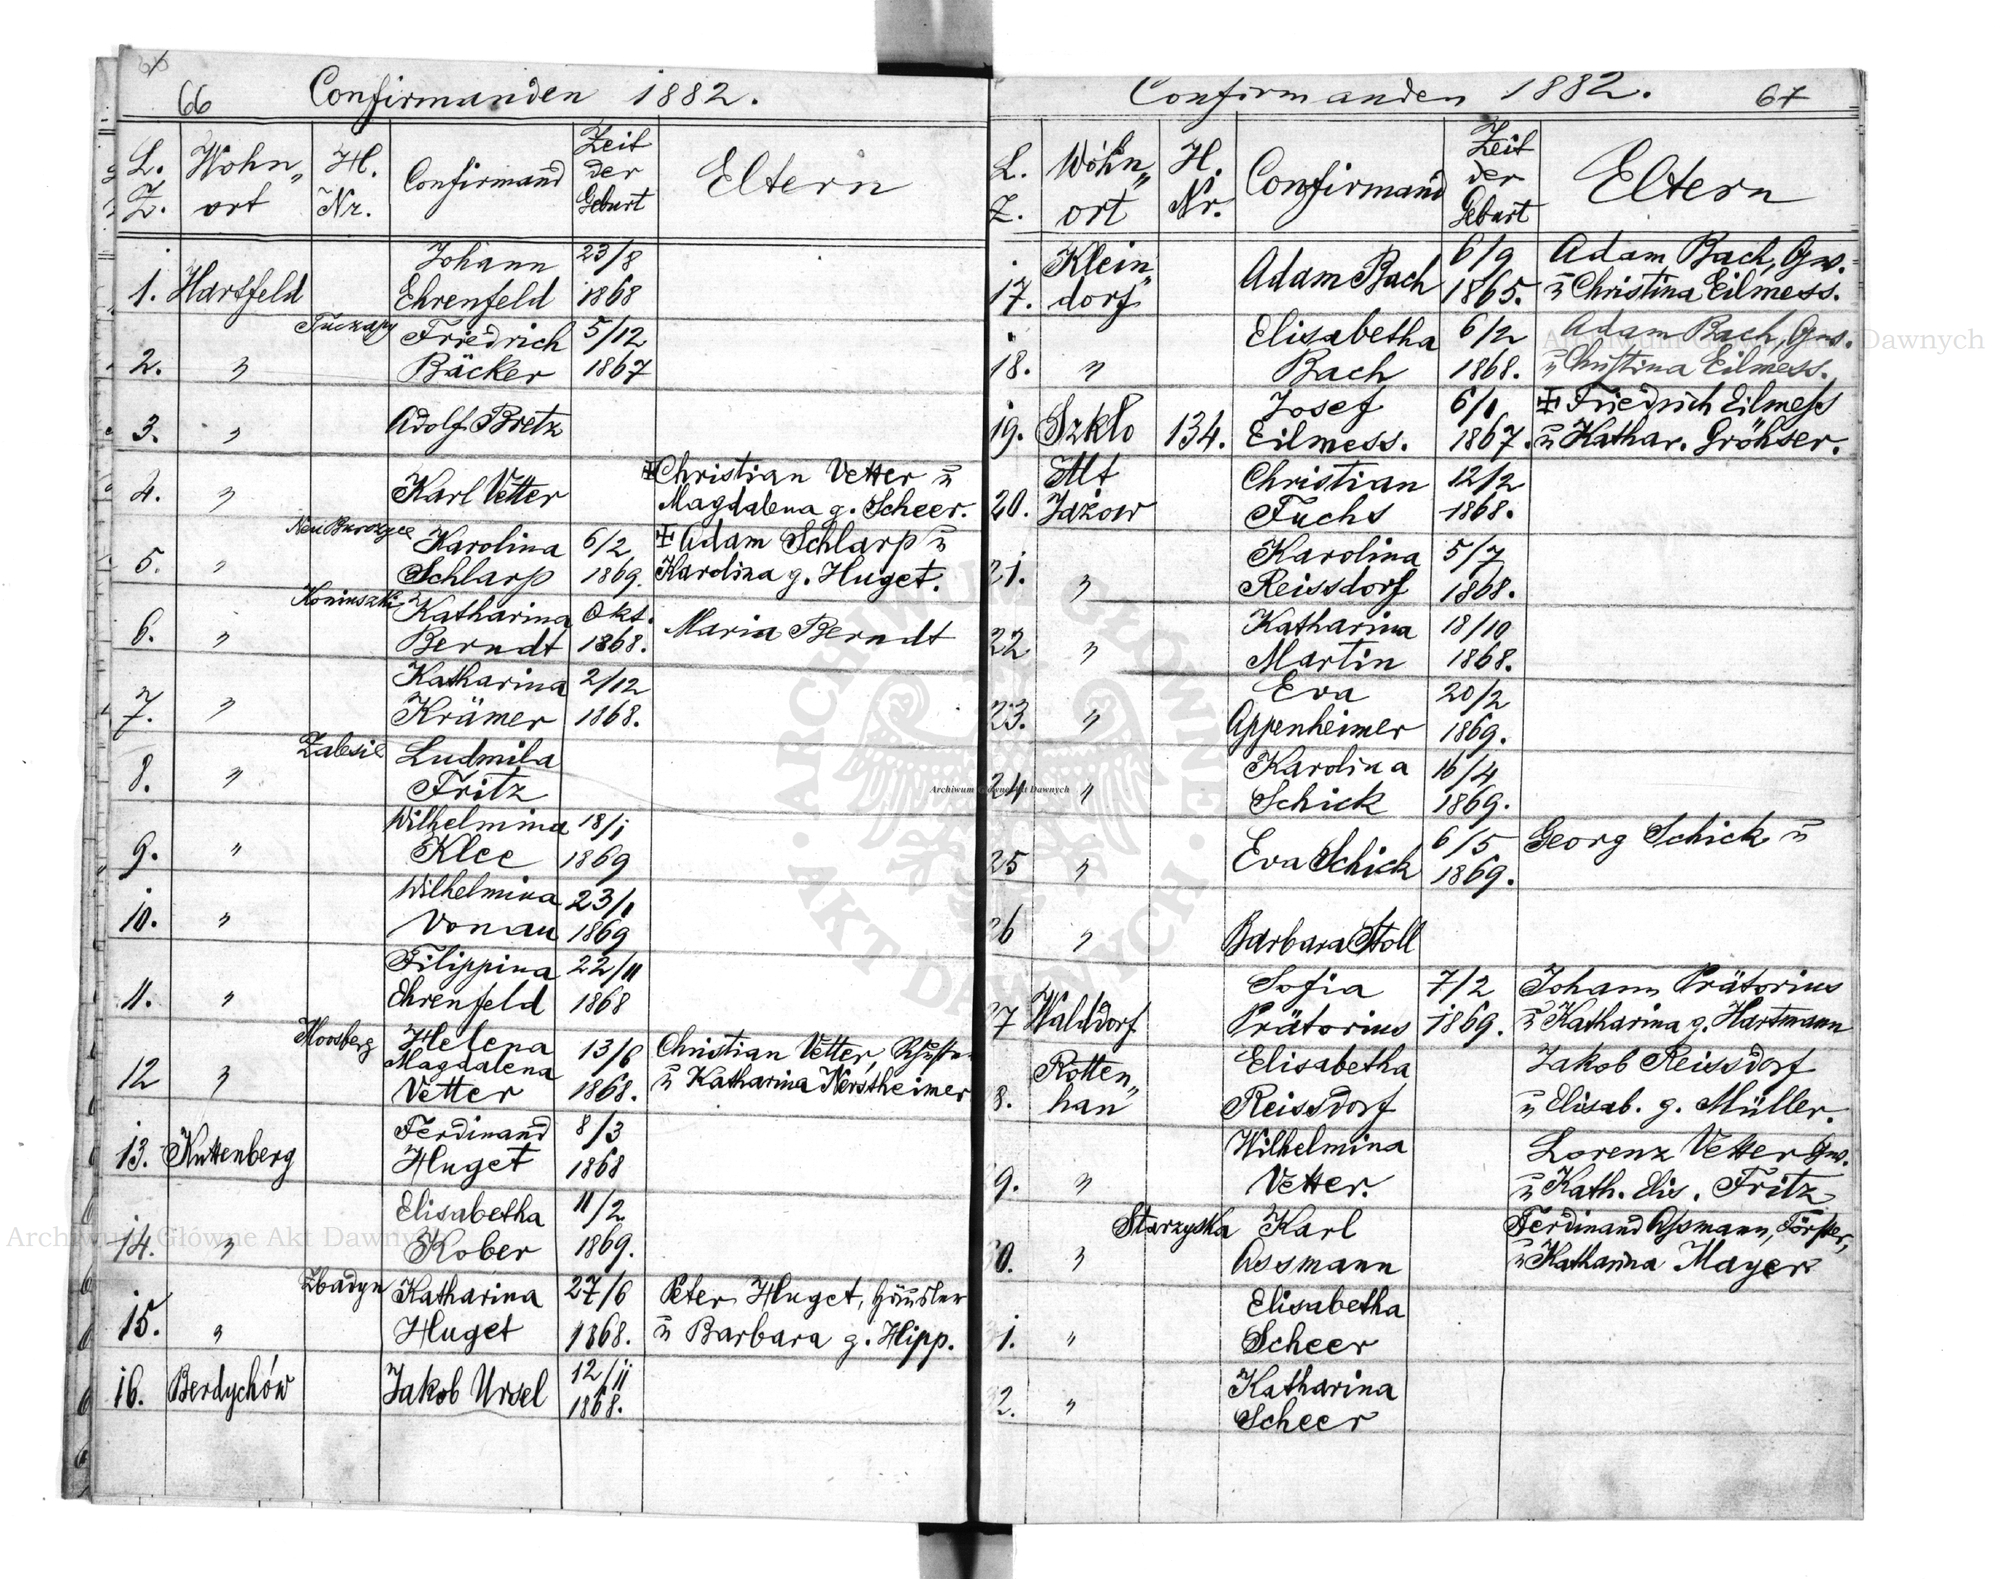 66 Confirmanden 1882.
L. Z. Wohn„ort H. Nr. Confirmand Zeit der Geburt Eltern
1. Hartfeld Johann Ehrenfeld 23/8 1868
2. " Tuczapy Friedrich Bäcker 5/12 1867
3. " Adolf Bretz
4. " Karl Vetter ✠ Christian Vetter u Magdalena g. Scheer.
5. " Karolina Schlarp 6/2 1869. ✠ Adam Schlarp u Karolina g. Huget.
6. " Koniuszki Katharina Berndt Okt. 1868. Maria Berndt
7. " Katharina Krämer 2/12 1868.
8. " Zalesie Ludmila Fritz
9. " Wilhelmina Klee 18/1 1869
10. " Wilhelmina Vonau 23/1 1869
11. " Filippina Ehrenfeld 22/11 1868
12 " Moosberg Helena Magdalena Vetter 13/8 1868. Christian Vetter, u Katharina Nerstheimer
13. Kuttenberg Ferdinand Huget 8/3 1868
14. " Elisabetha Kober 11/2 1869.
15. " Zbadyn Katharina Huget 27/6 1868. Peter Huget, Häusler u Barbara g. Hipp.
16. Berdychów Jakob Ursel 12/11 1868.
Confirmanden 1882. 67
L. Z. Wohn„ort H. Nr. Confirmand Zeit der Geburt Eltern
17. Klein„dorf Adam Bach 6/9 1865. Adam Bach, Gw. u Christina Eilmess.
18. " Elisabetha Bach 6/2 1868. Adam Bach, Gw. u Christina Eilmess.
19. Szkło 134. Josef Eilmess. 6/1 1867. ✠ Friedrich Eilmess u Kathar. Gröhser.
20. Alt Jażow Christian Fuchs 12/2 1868.
21. " Karolina Reissdorf 5/7 1868.
22 " Katharina Martin 18/10 1868.
23. " Eva Appenheimer 20/2 1869.
24 " Karolina Schick 16/4 1869.
25 " Eva Schick 6/5 1869. Georg Schick u
26 " Barbara Stoll
27 Walddorf Sofia Prätorius 7/2 1869. Johann Prätorius u Katharina g. Hartmann
8. Rotten„han Elisabetha Reissdorf Jakob Reissdorf u Elisab. g. Müller.
9. " Wilhelmina Vetter. Lorenz Vetter Gw. u Kath. Elis. Fritz
30. " Starzyska Karl Assmann Ferdinand Assmann, Förster, u Katharina Mayer
1. " Elisabetha Scheer
2. " Katharina Scheer
Archiwum Główne Akt Dawnych
ARCHIWUM GŁÓWNE · AKT DAWNYCH ·
Archiwum Główne Akt Dawnych
Archiwum Główne Akt Dawnych